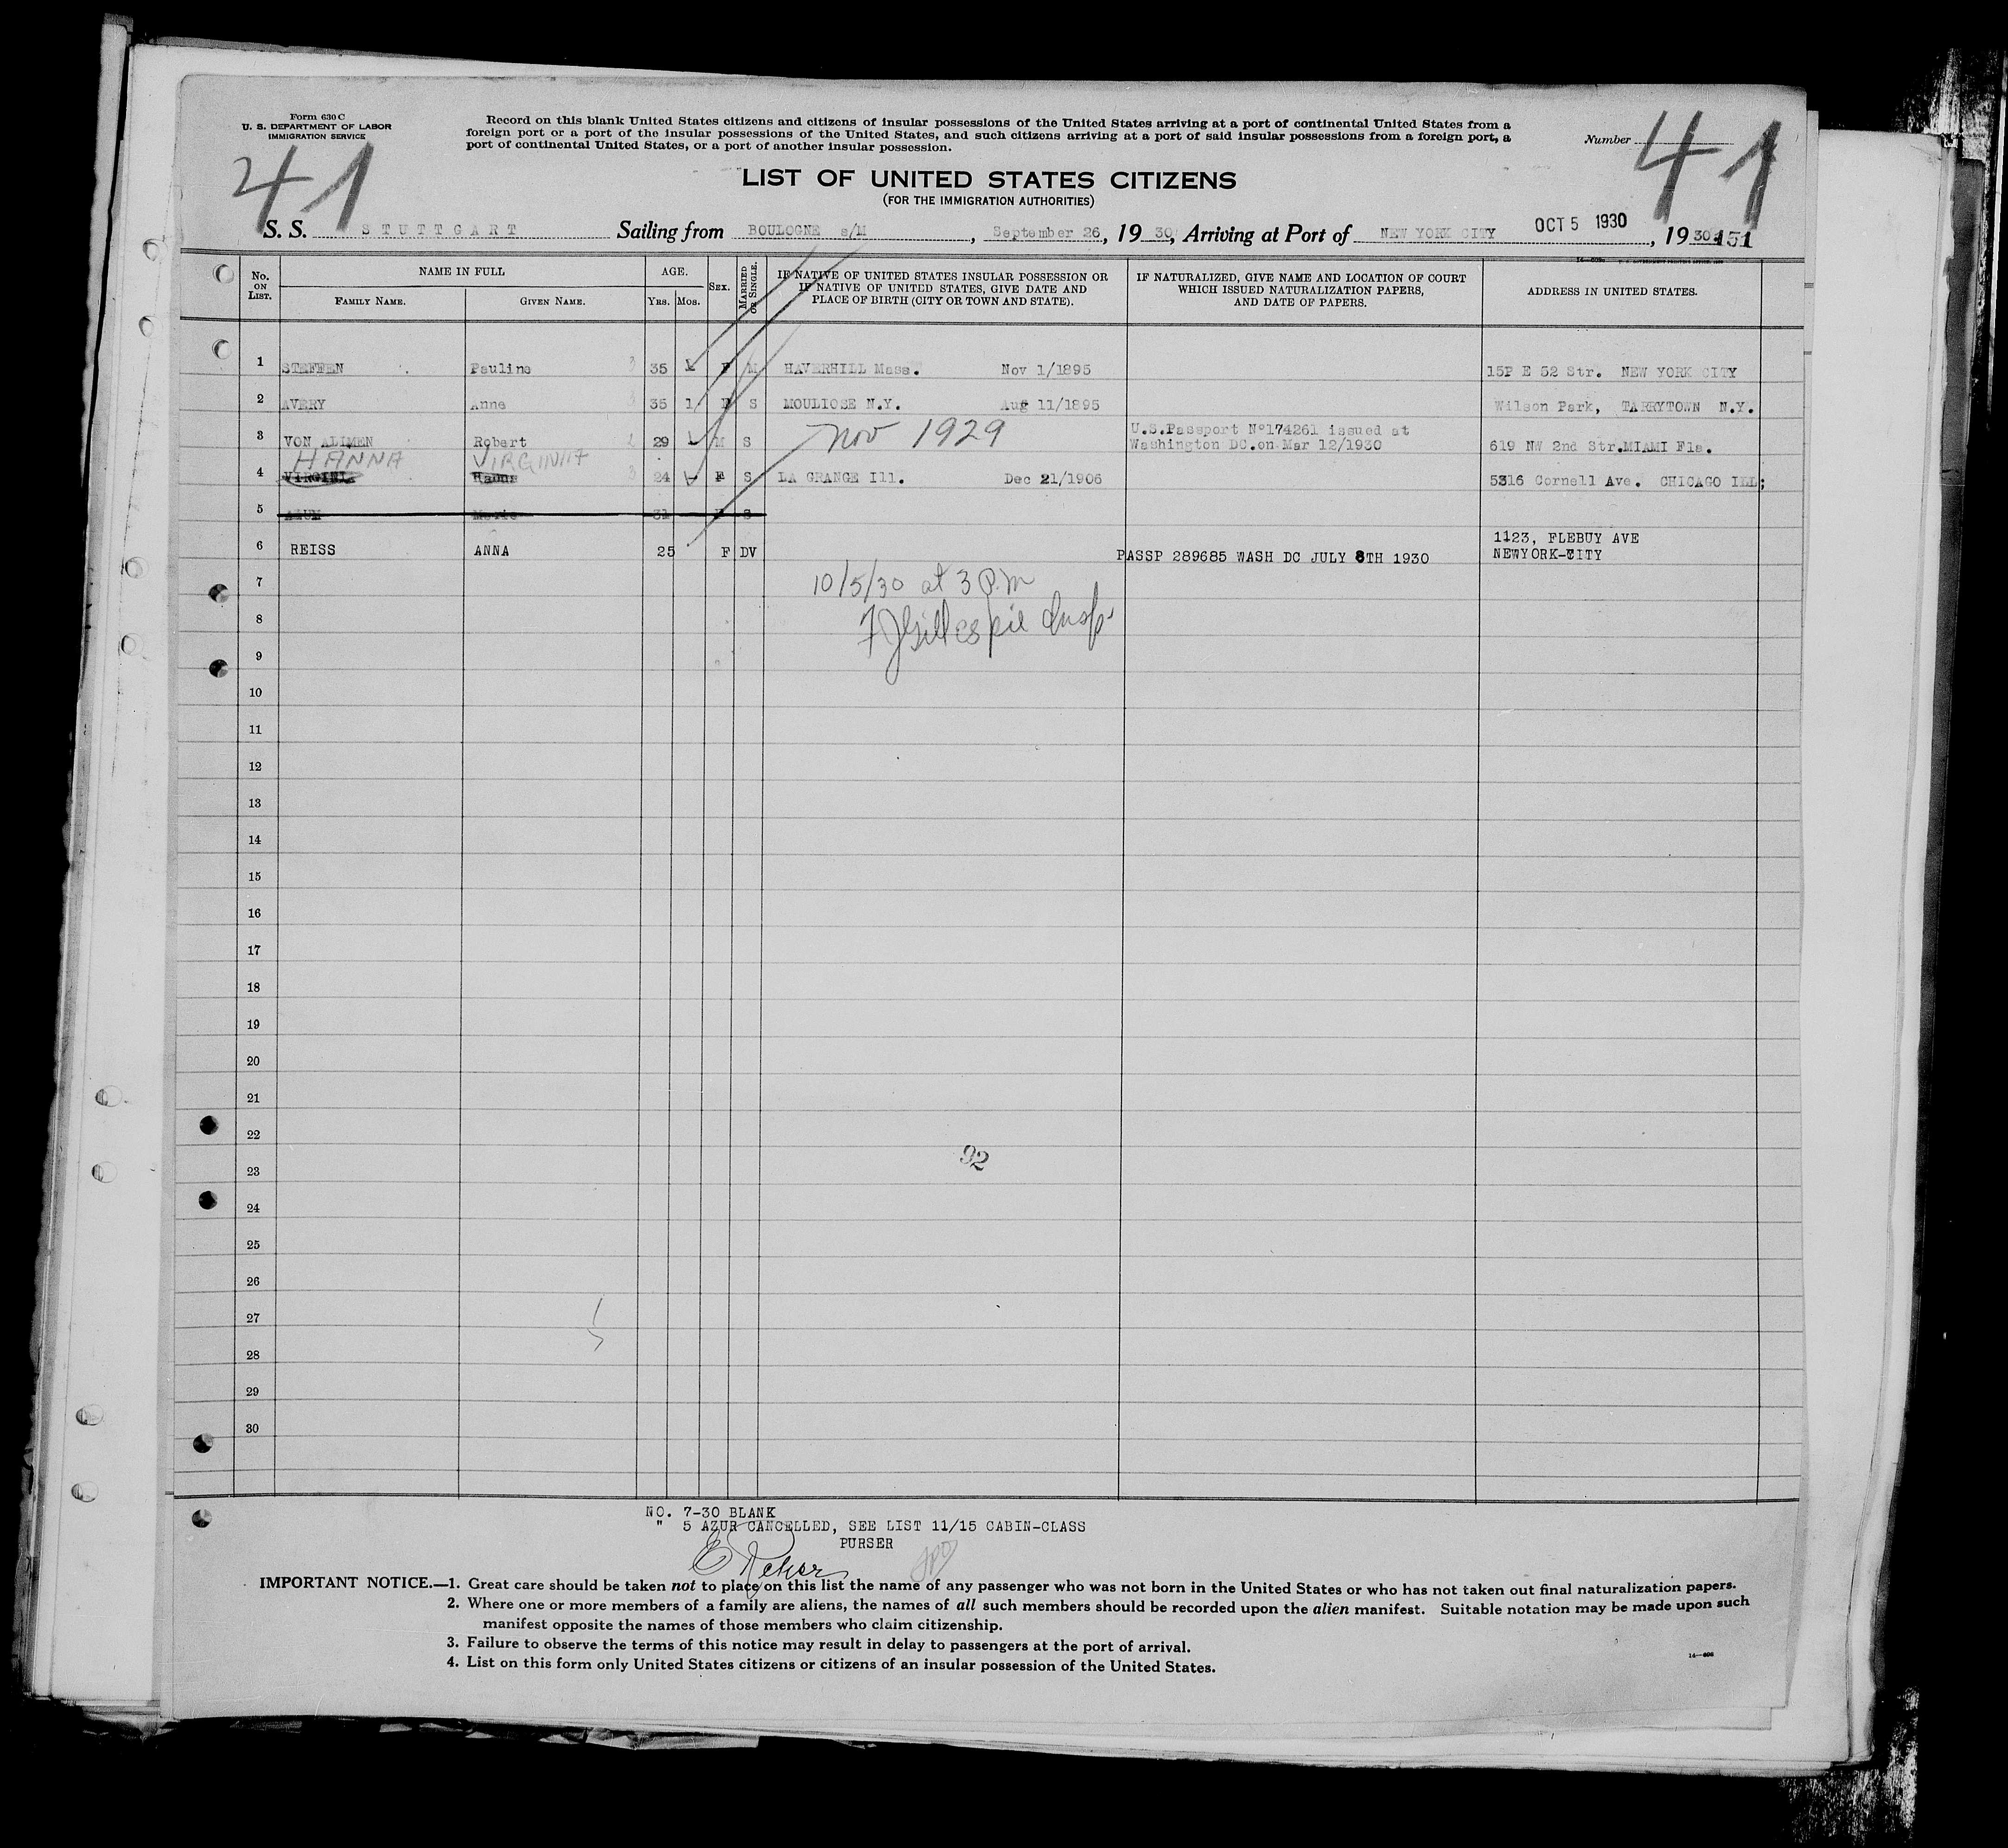 Form 630 C
U. S. DEPARTMENT OF LABOR
IMMIGRATION SERVICE
Record on this blank United States citizens and citizens of insular possessions of the United States arriving at a port of continental United States from a
foreign port or a port of the insular possessions of the United States, and such citizens arriving at a port of said insular possessions from a foreign port, a
port of continental United States, or a port of another insular possession.
Number
41 41
LIST OF UNITED STATES CITIZENS
(FOR THE IMMIGRATION AUTHORITIES)
S. S. STUTTGART Sailing from BOULOGNE s/M, September 26, 19 30, Arriving at Port of NEW YORK CITY OCT 5 1930, 19 30 151
No. ON LIST. NAME IN FULL AGE. SEX. MARRIED OR SINGLE. IF NATIVE OF UNITED STATES INSULAR POSSESSION OR IF NATIVE OF UNITED STATES, GIVE DATE AND PLACE OF BIRTH (CITY OR TOWN AND STATE). IF NATURALIZED, GIVE NAME AND LOCATION OF COURT WHICH ISSUED NATURALIZATION PAPERS, AND DATE OF PAPERS. ADDRESS IN UNITED STATES.
FAMILY NAME. GIVEN NAME. YRS. MOS.
1 STEFFEN Pauline 35 F M HAVERHILL Mass. Nov 1/1895 15P E 52 Str. NEW YORK CITY
2 AVERY Anne 35 1 F S MOULIOSE N.Y. Aug 11/1895 Wilson Park, TARRYTOWN N.Y.
3 VON ALIMEN Robert 29 M S Nov 1929 U.S.Passport Nº174261 issued at
Washington DC.on Mar 12/1930 619 NW 2nd Str.MIAMI Fla.
HANNA VIRGINIA
4 VIRGINIA Hanna 24 F S LA GRANGE Ill. Dec 21/1906 5316 Cornell Ave. CHICAGO ILL;
5 Marie 31 F S
6 REISS ANNA 25 F DV PASSP 289685 WASH DC JULY 8TH 1930 1123, FLEBUY AVE
NEWYORK-CITY
7
10/5/30 at 3 P.M
8
F J Gillespie Insp
9
10
11
12
13
14
15
16
17
18
19
20
21
22
92
23
24
25
26
27
28
29
30
NO. 7-30 BLANK
" 5 AZUR CANCELLED, SEE LIST 11/15 CABIN-CLASS
PURSER
IMPORTANT NOTICE.—1. Great care should be taken not to place on this list the name of any passenger who was not born in the United States or who has not taken out final naturalization papers.
2. Where one or more members of a family are aliens, the names of all such members should be recorded upon the alien manifest. Suitable notation may be made upon such
manifest opposite the names of those members who claim citizenship.
3. Failure to observe the terms of this notice may result in delay to passengers at the port of arrival.
4. List on this form only United States citizens or citizens of an insular possession of the United States.